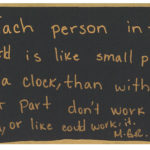 Each person in t
ld is like small p
a clock, than with
r part don't work
, or like could work it.
M.G.R.